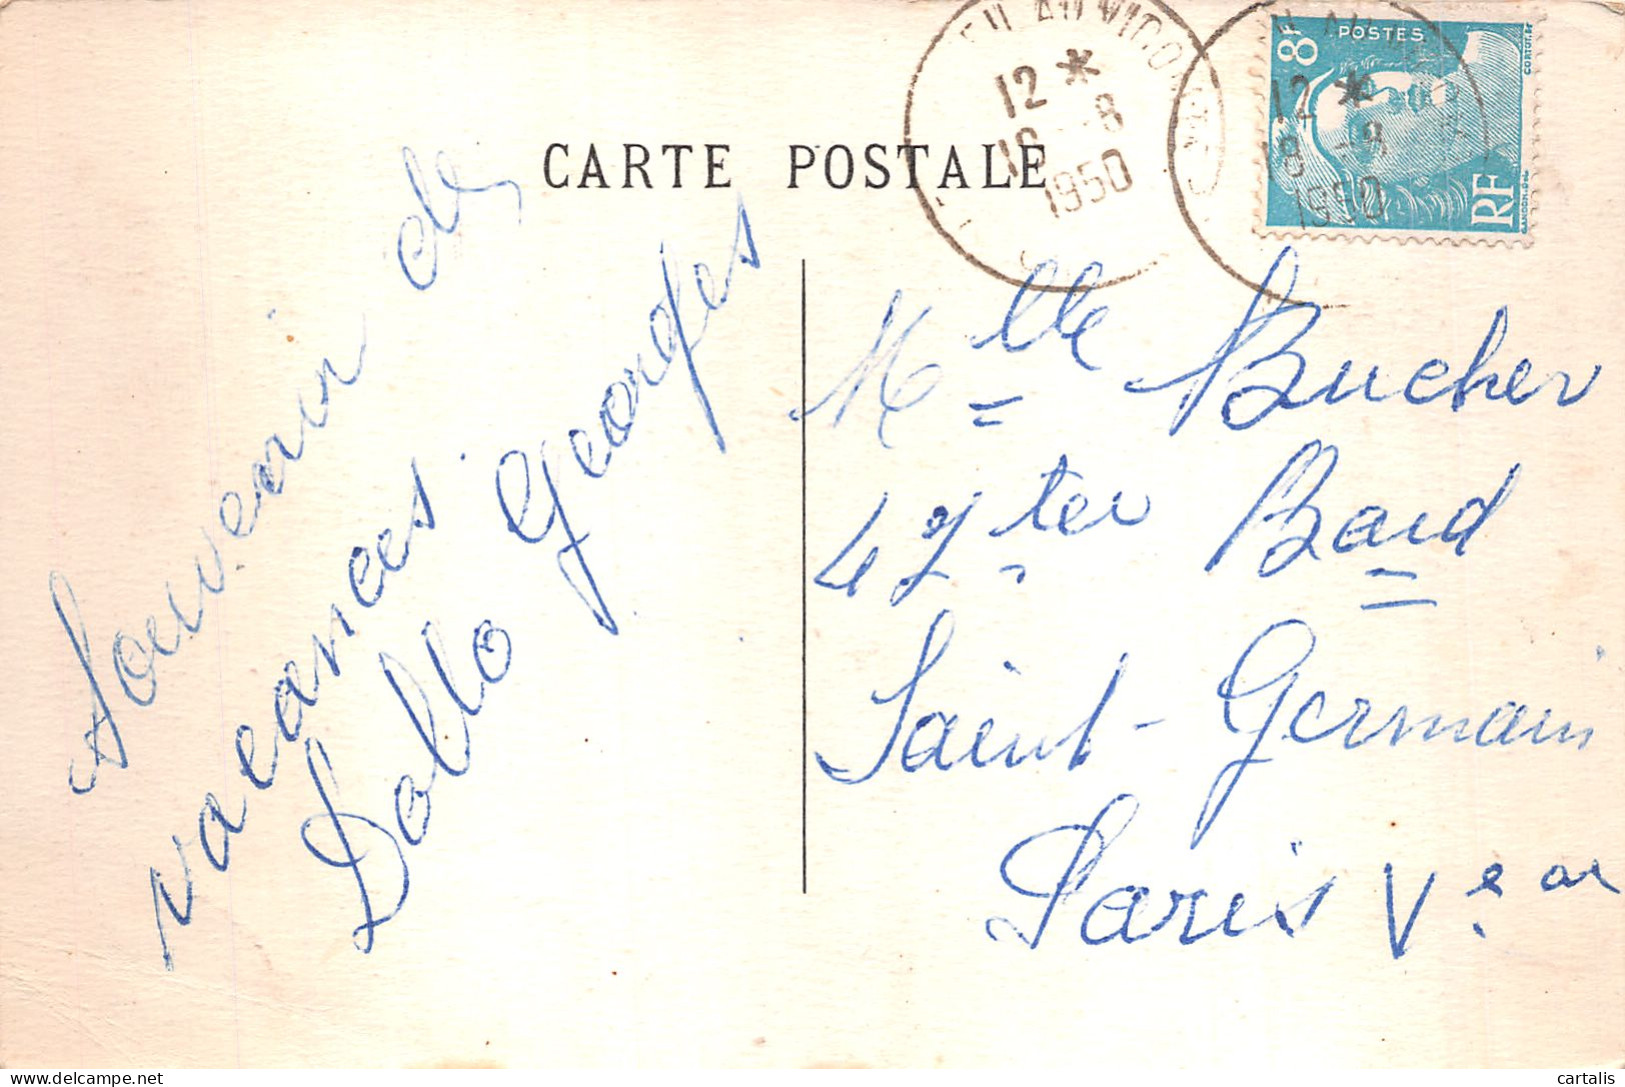 CARTE POSTALE
12 *
1950
8F
POSTES
RF
12 *
18 -8
1950
Souvenir de
vacances
Dollo Georges
Mlle Bucher
47 ter Bard
Saint-Germain
Paris Ve ar
delcampe.net
cartalis